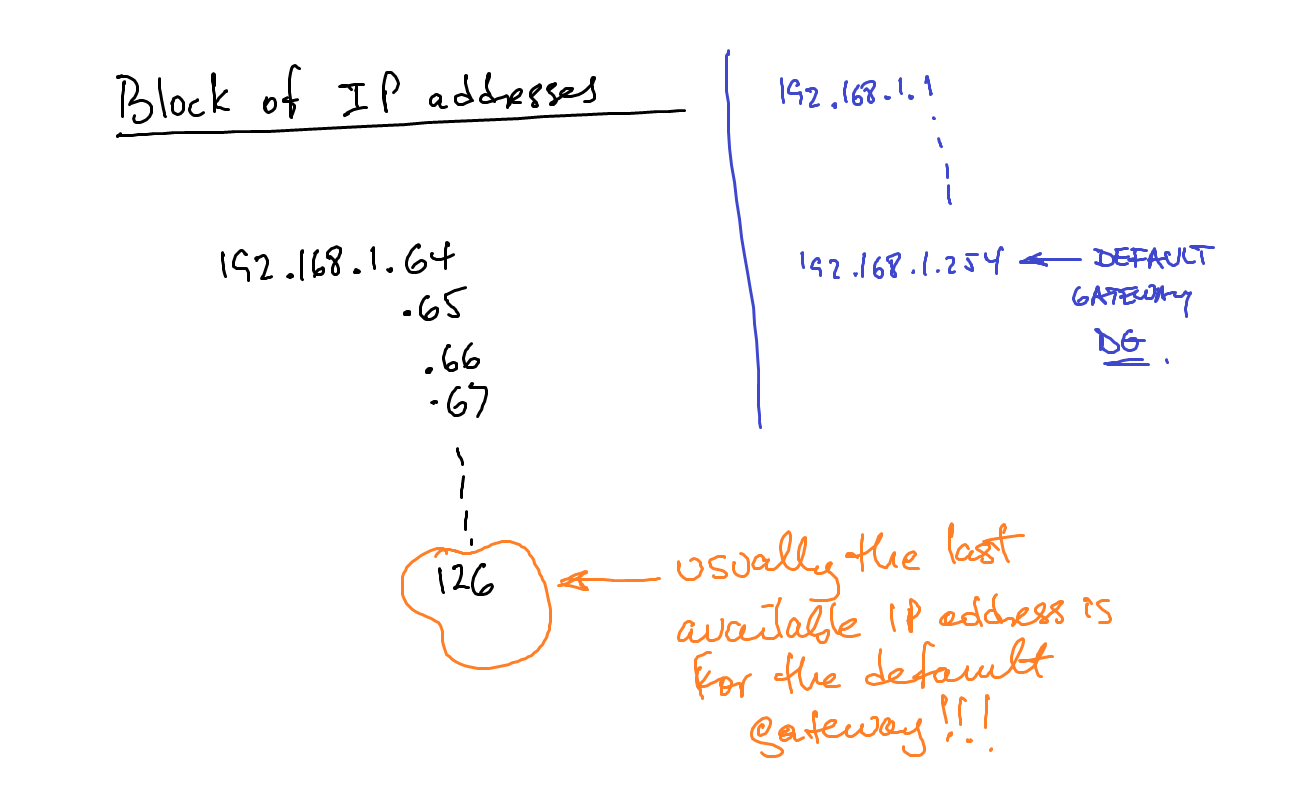 Block of IP addresses
192.168.1.64
.65
.66
.67
126
usually the last
available IP address is
For the default
gateway!!!
192.168.1.1
192.168.1.254 ← DEFAULT
GATEWAY
DG.